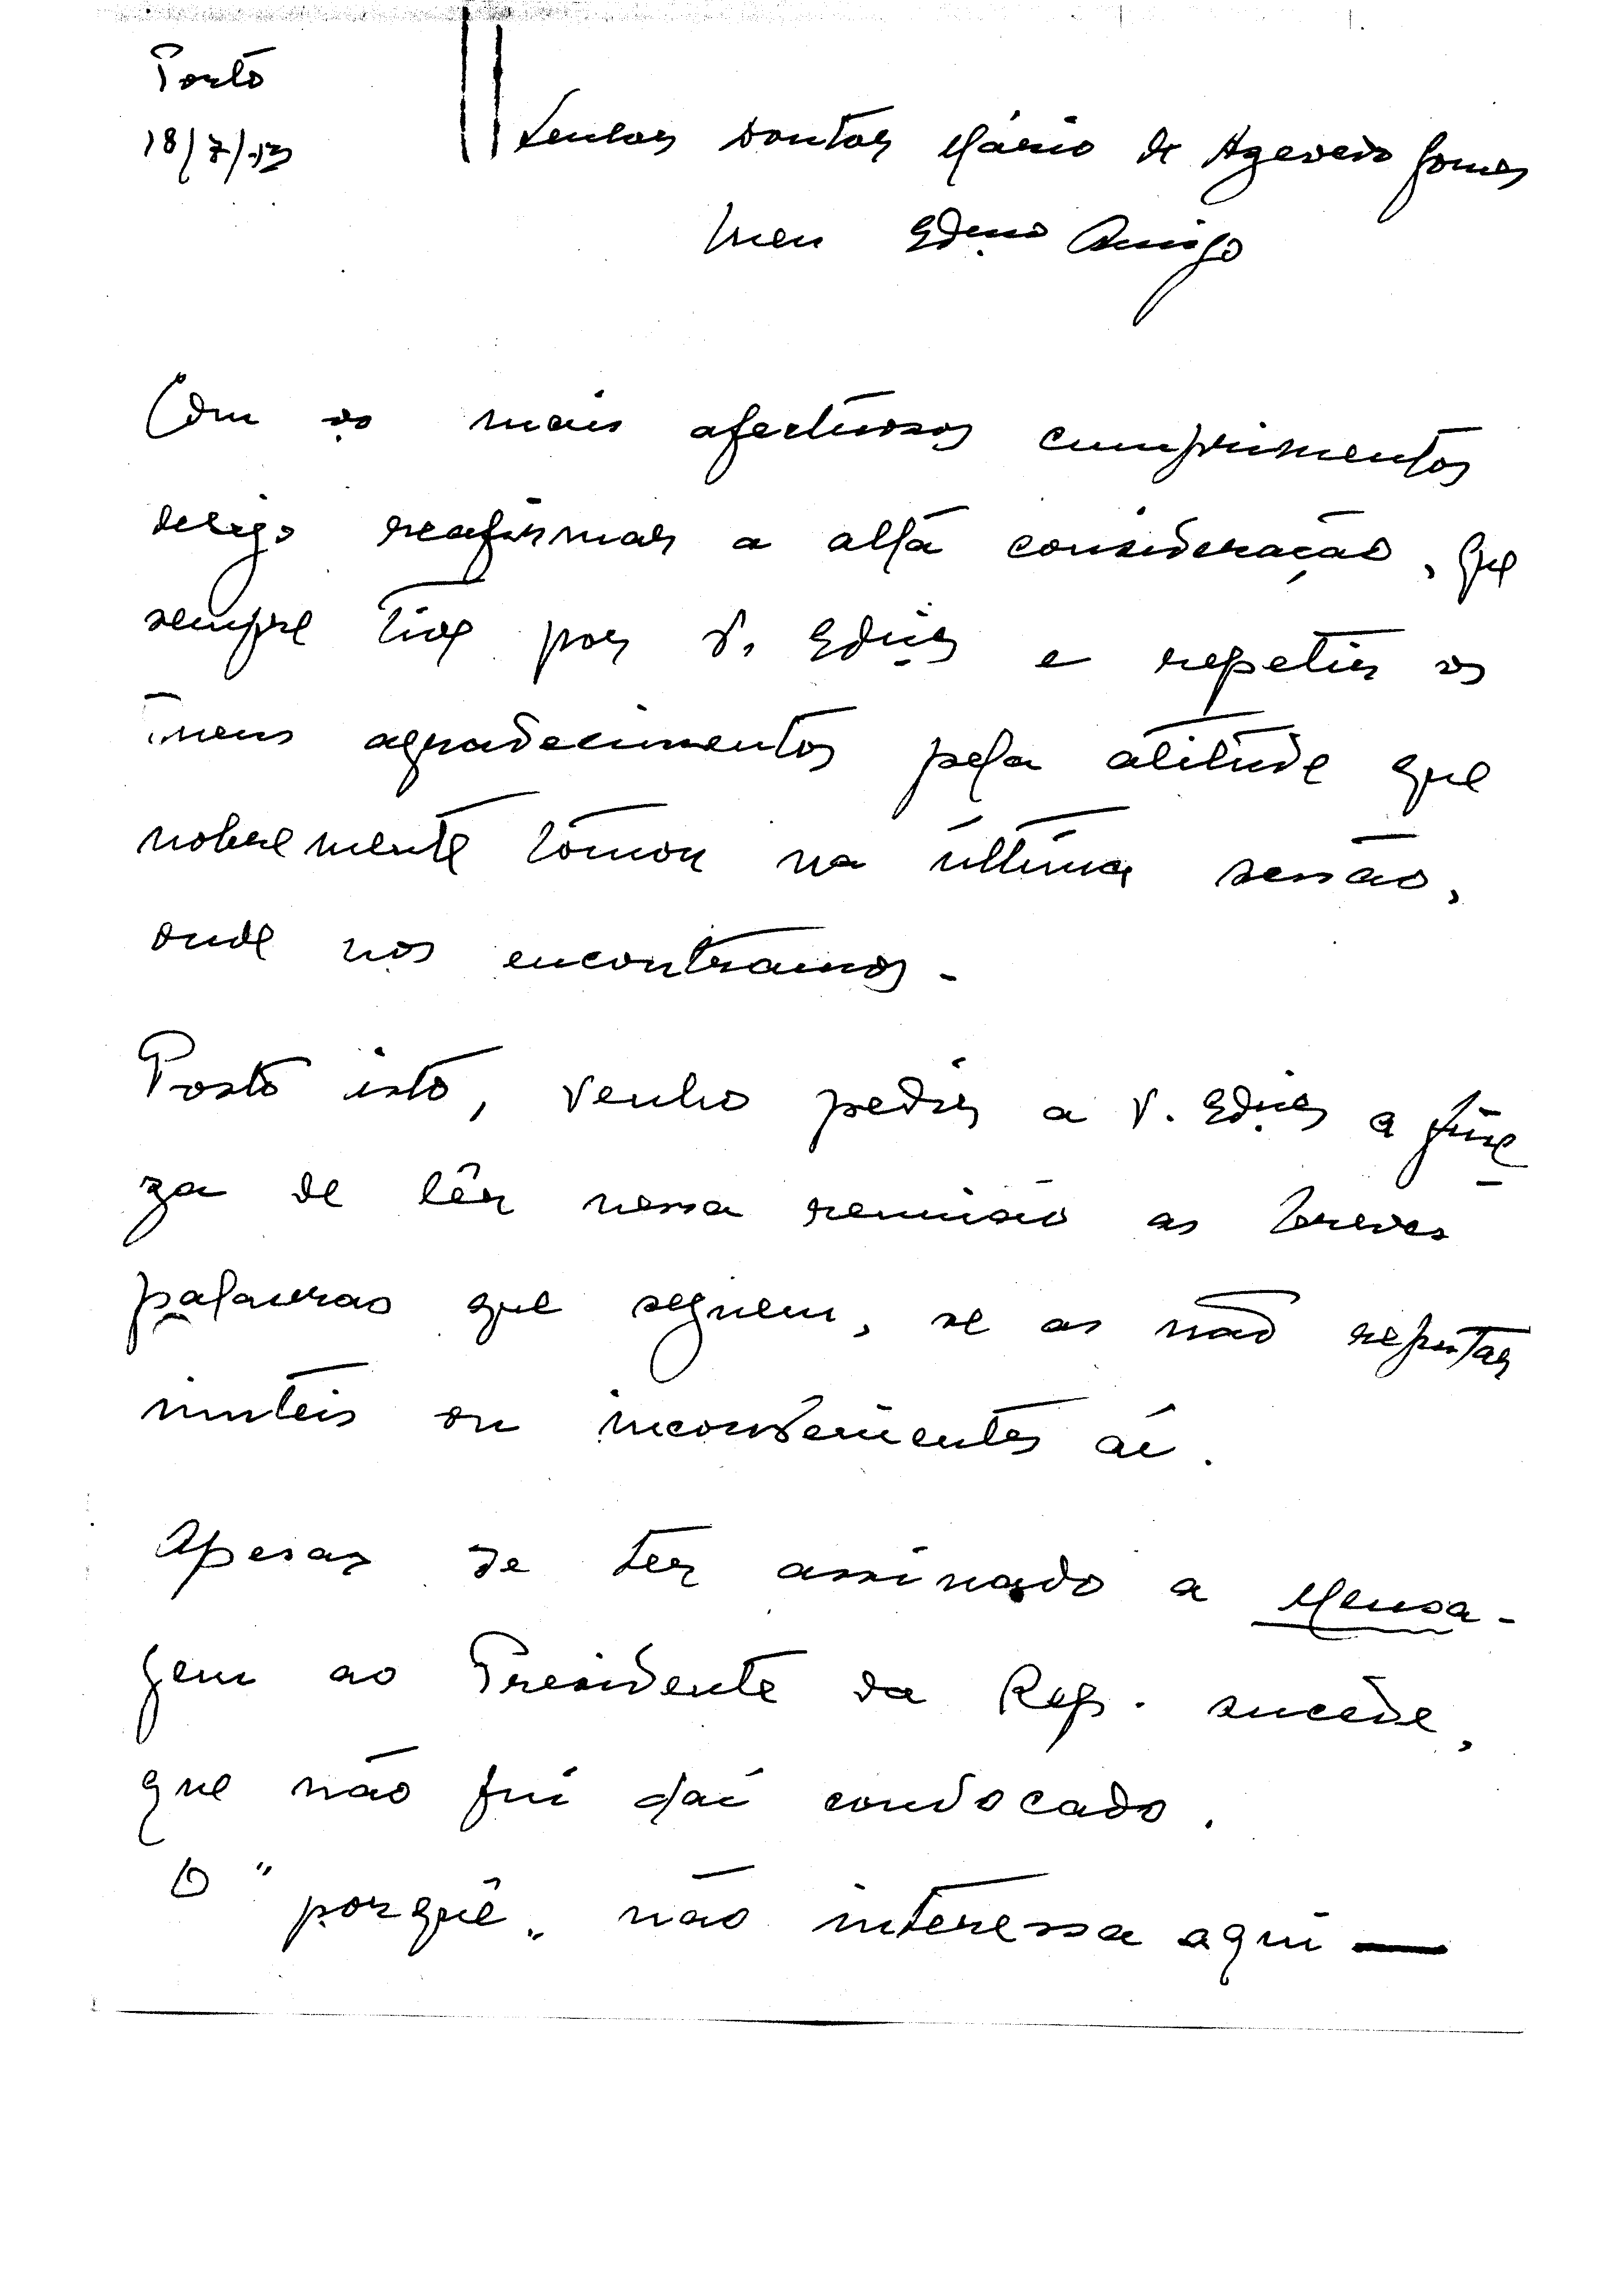 Porto
18/7/53
Senhor Doutor Mário de Azevedo Gomes
Meu Exmo Amigo
Com os mais afectuosos cumprimentos
desejo reafirmar a alta consideração, que
sempre tive por V. Excia e repetir os
meus agradecimentos pela atitude que
nobremente tomou na última sessão,
onde nos encontramos.
Posto isto, venho pedir a V. Excia a fine
za de lêr nessa reunião as breves
palavras que seguem, se as não reputar
inuteis ou inconvenientes aí.
Apesar de ter assinado a Mensa-
gem ao Presidente da Rep. sucede,
que não fui daí convocado.
O "porquê" não interessa aqui —